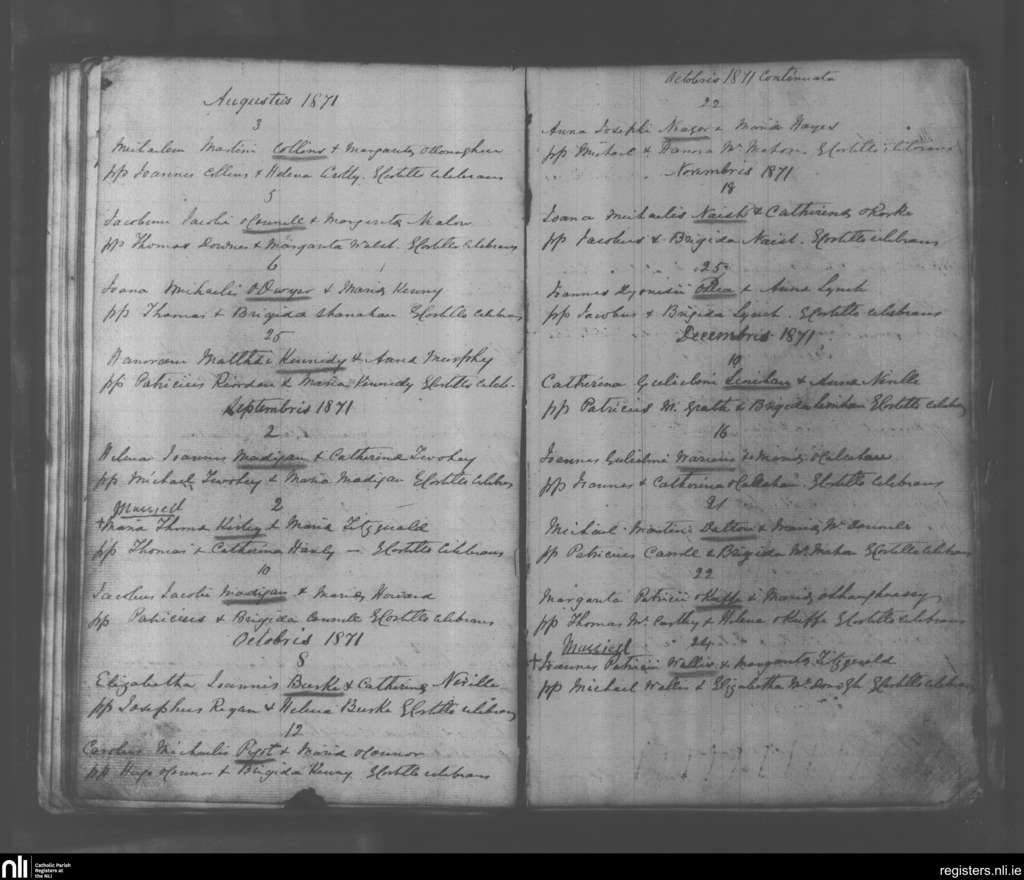 Augustus 1871
3
Michaelem Martini Collins & Margarita
pp Joannes Collins & Helena E Costello celebrans
5
Jacobum Jacobi & Margarita
pp Thomas Downes & Margarita Walsh. E Costello celebrans
6
Joana Michaelis O'Dwyer & Maria Kenny
pp Thomas & Brigida Shanahan E Costello celebrans
25
Matthei Kennedy & Anna Murphy
pp Patricius Riordan & Maria Kennedy E Costello celeb.
Septembris 1871
2
Helena Joannis Madigan & Catherina Twohey
pp Michael Twohey & Maria Madigan E Costello celebrans
Married 2
+Maria Thoma & Maria Fitzgerald
pp Thomas & Catherina Hanly — E Costello celebrans
10
Jacobus Jacobi Madigan & Maria Howard
pp Patricius & Brigida E Costello celebrans
Octobris 1871
8
Elizabetha Joannis Burke & Catherina Neville
pp Josephus Regan & Helena Burke E Costello celebrans
12
Carolus Michaelis Pigot & Maria O'Connor
pp Hugo O'Connor & Brigida Kenny E Costello celebrans
Octobris 1871 Continuata
22
Anna Josephi & Maria Hayes
pp Michael & Hanora McMahon E Costello celebrans
Novembris 1871
18
Joana Michaelis Naish & Catherina O'Rorke
pp Jacobus & Brigida Naish. E Costello celebrans
25
Joannes Dyonisii O'Dea & Anna Lynch
pp Jacobus & Brigida Lynch. E Costello celebrans
Decembris 1871
10
Catherina Gulielmi Lenihan & Anna Neville
pp Patricius McGrath & Brigida Lenihan E Costello celebrans
16
Joannes Gulielmi & Maria O'Calahan
pp Joannes & Catherina O'Calahan. E Costello celebrans
21
Michael Martini Dalton & Maria
pp Patricius Carroll & Brigida McMahon E Costello celebrans
22
Margarita Patricii O'Keeffe & Maria O'Shaughnessy
pp Thomas McCarthy & Helena O'Keeffe E Costello celebrans
Married 24
+Joannes Patricii Wallis & Margarita Fitzgerald
pp Michael Wallis & Elizabetha McDonogh E Costello celebrans
nli Catholic Parish Registers at the NLI
registers.nli.ie